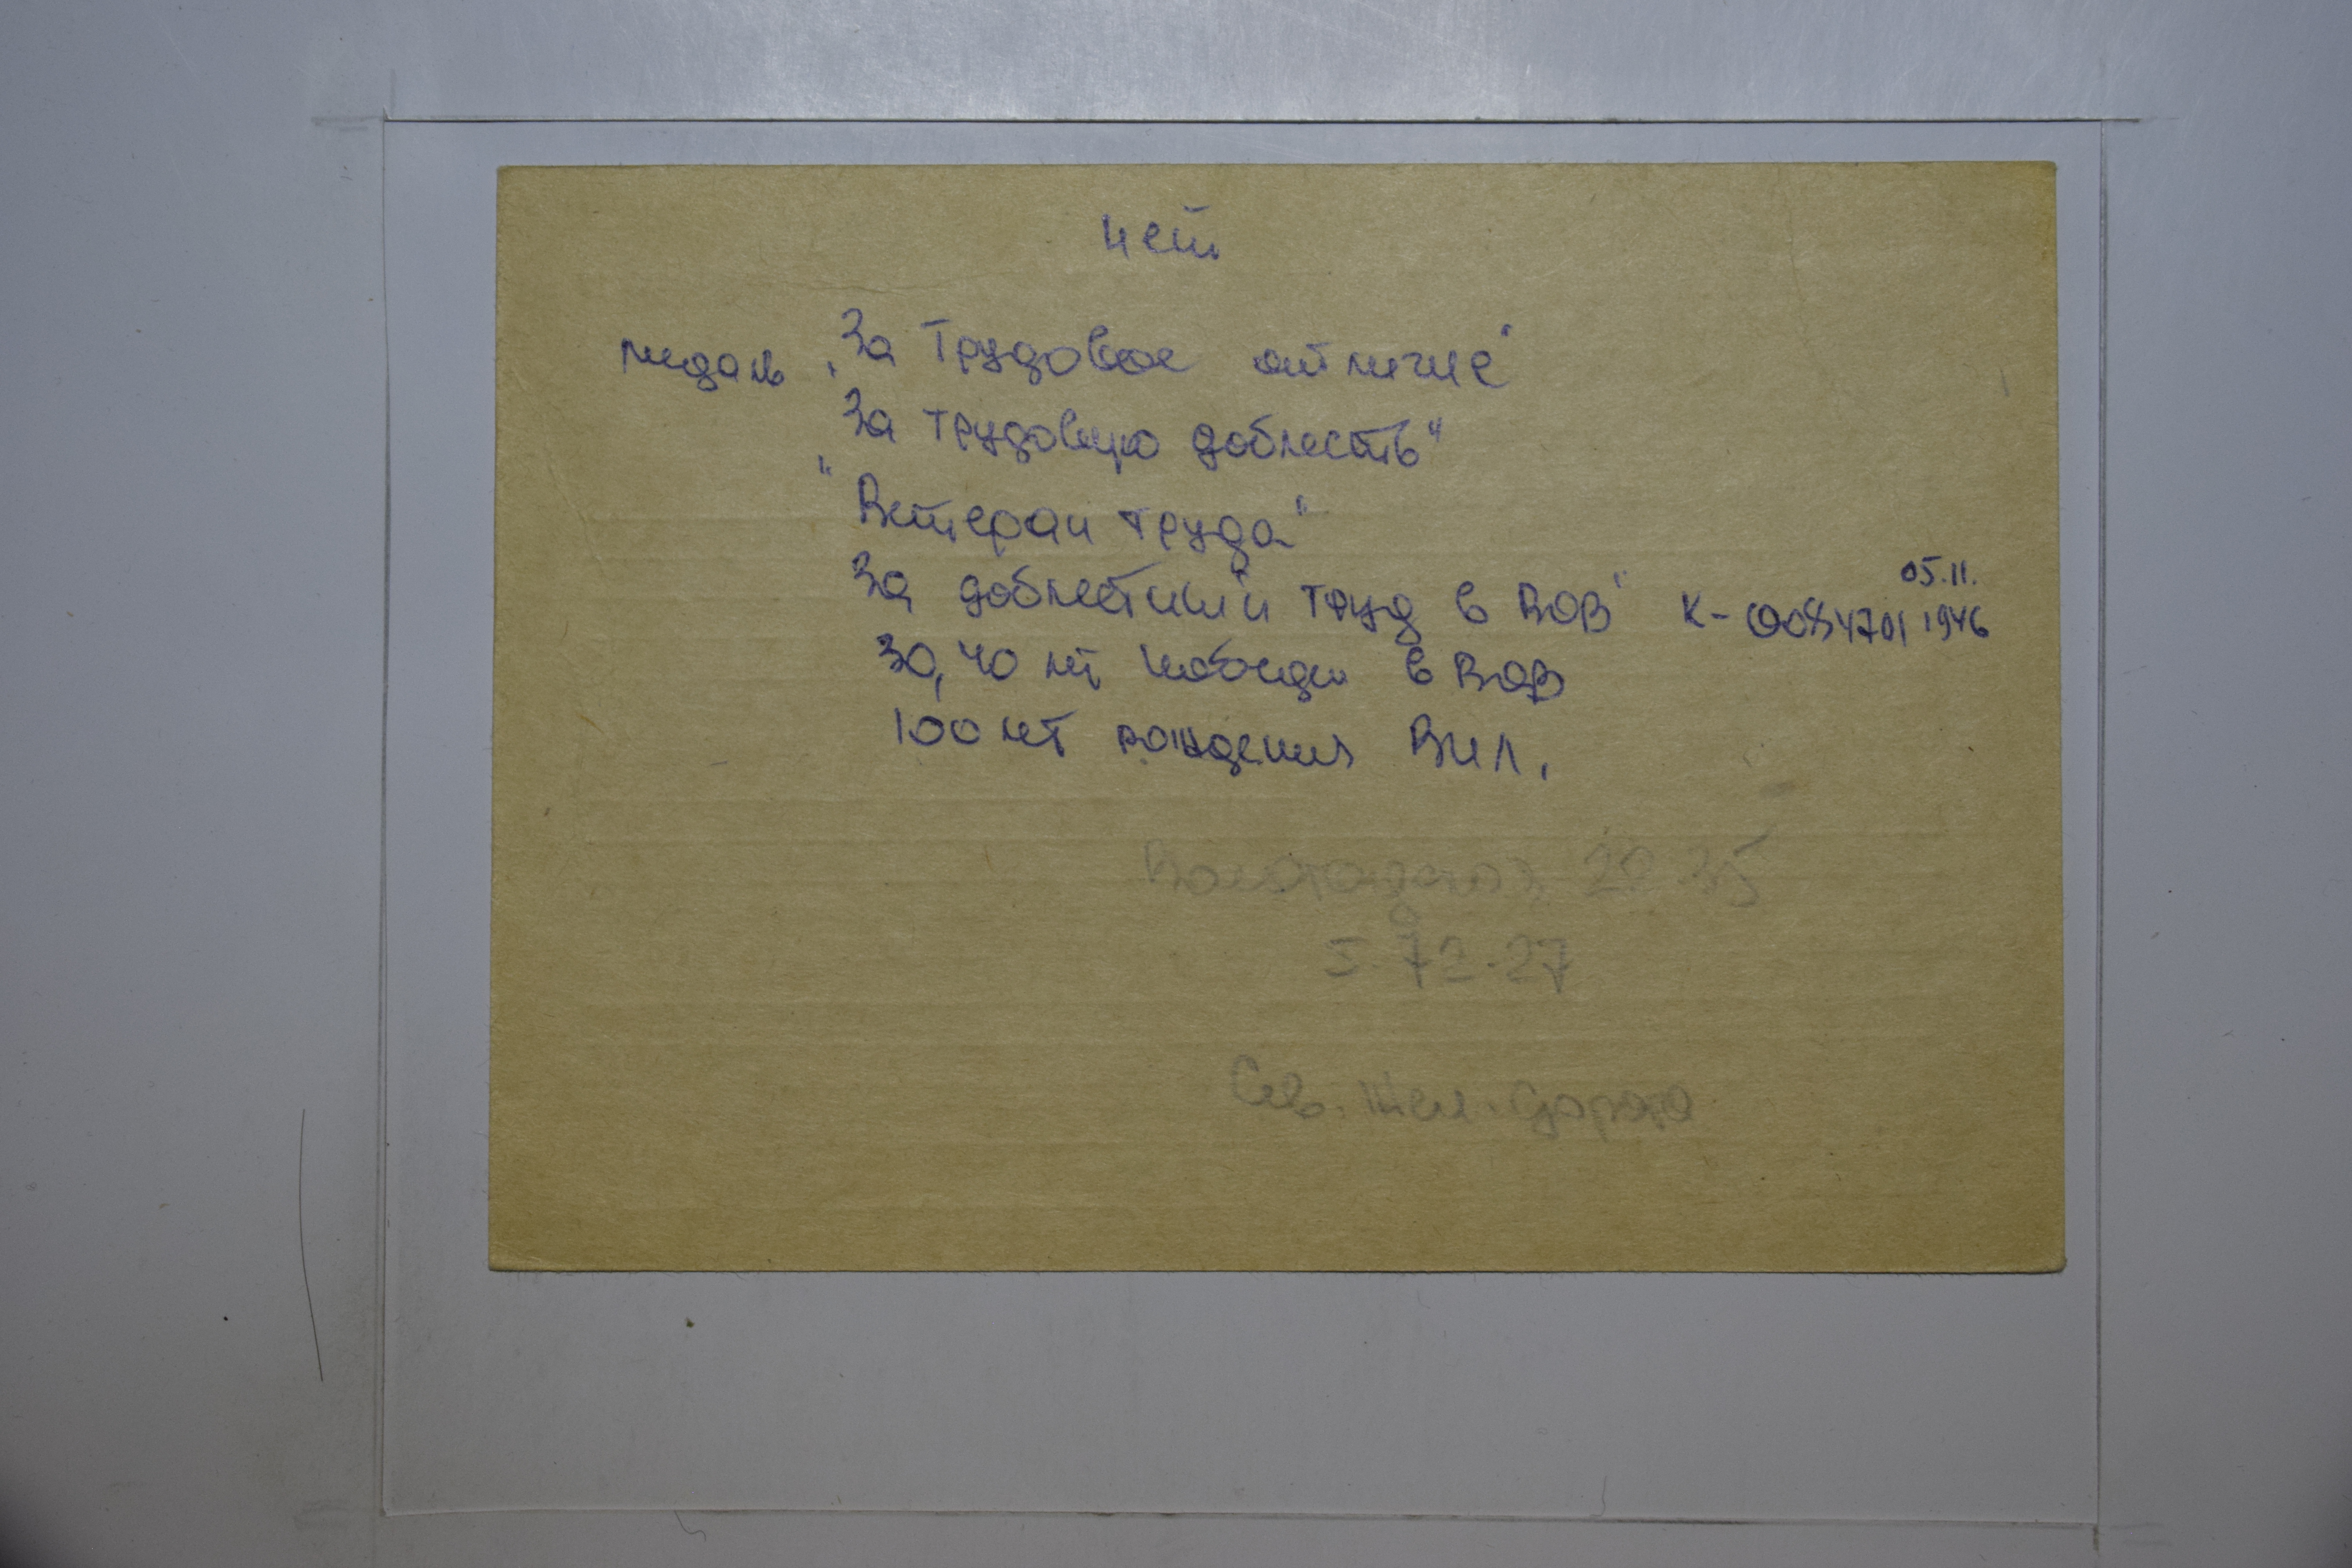 нет
медаль „За Трудовое отличие"
За трудовую доблесть"
"Ветеран труда"
За доблестный труд в ВОВ" К-0084701 05.11. 1946
30, 40 лет победы в ВОВ
100 лет рождения ВИЛ.
20 35
72-27
Сев. Жел. дорога